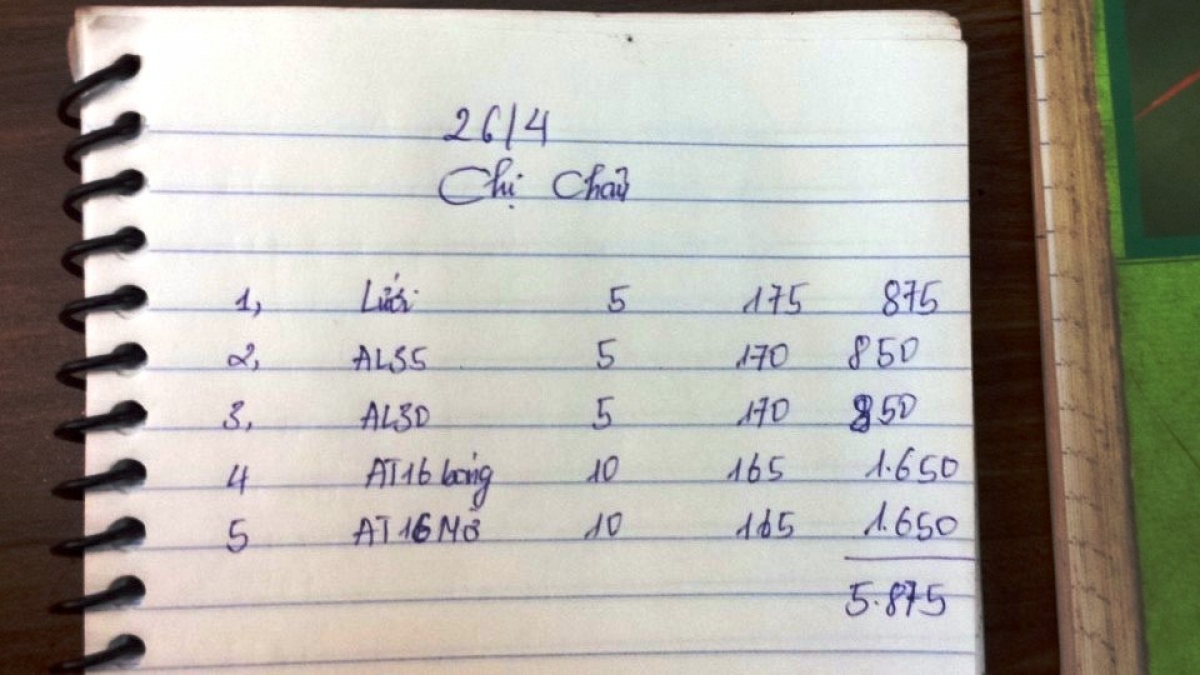 26/4
Chị Châu
1, Lưới 5 175 875
2, AL35 5 170 850
3, AL30 5 170 850
4 AT16 bóng 10 165 1.650
5 AT16 Mờ 10 165 1.650
5.875